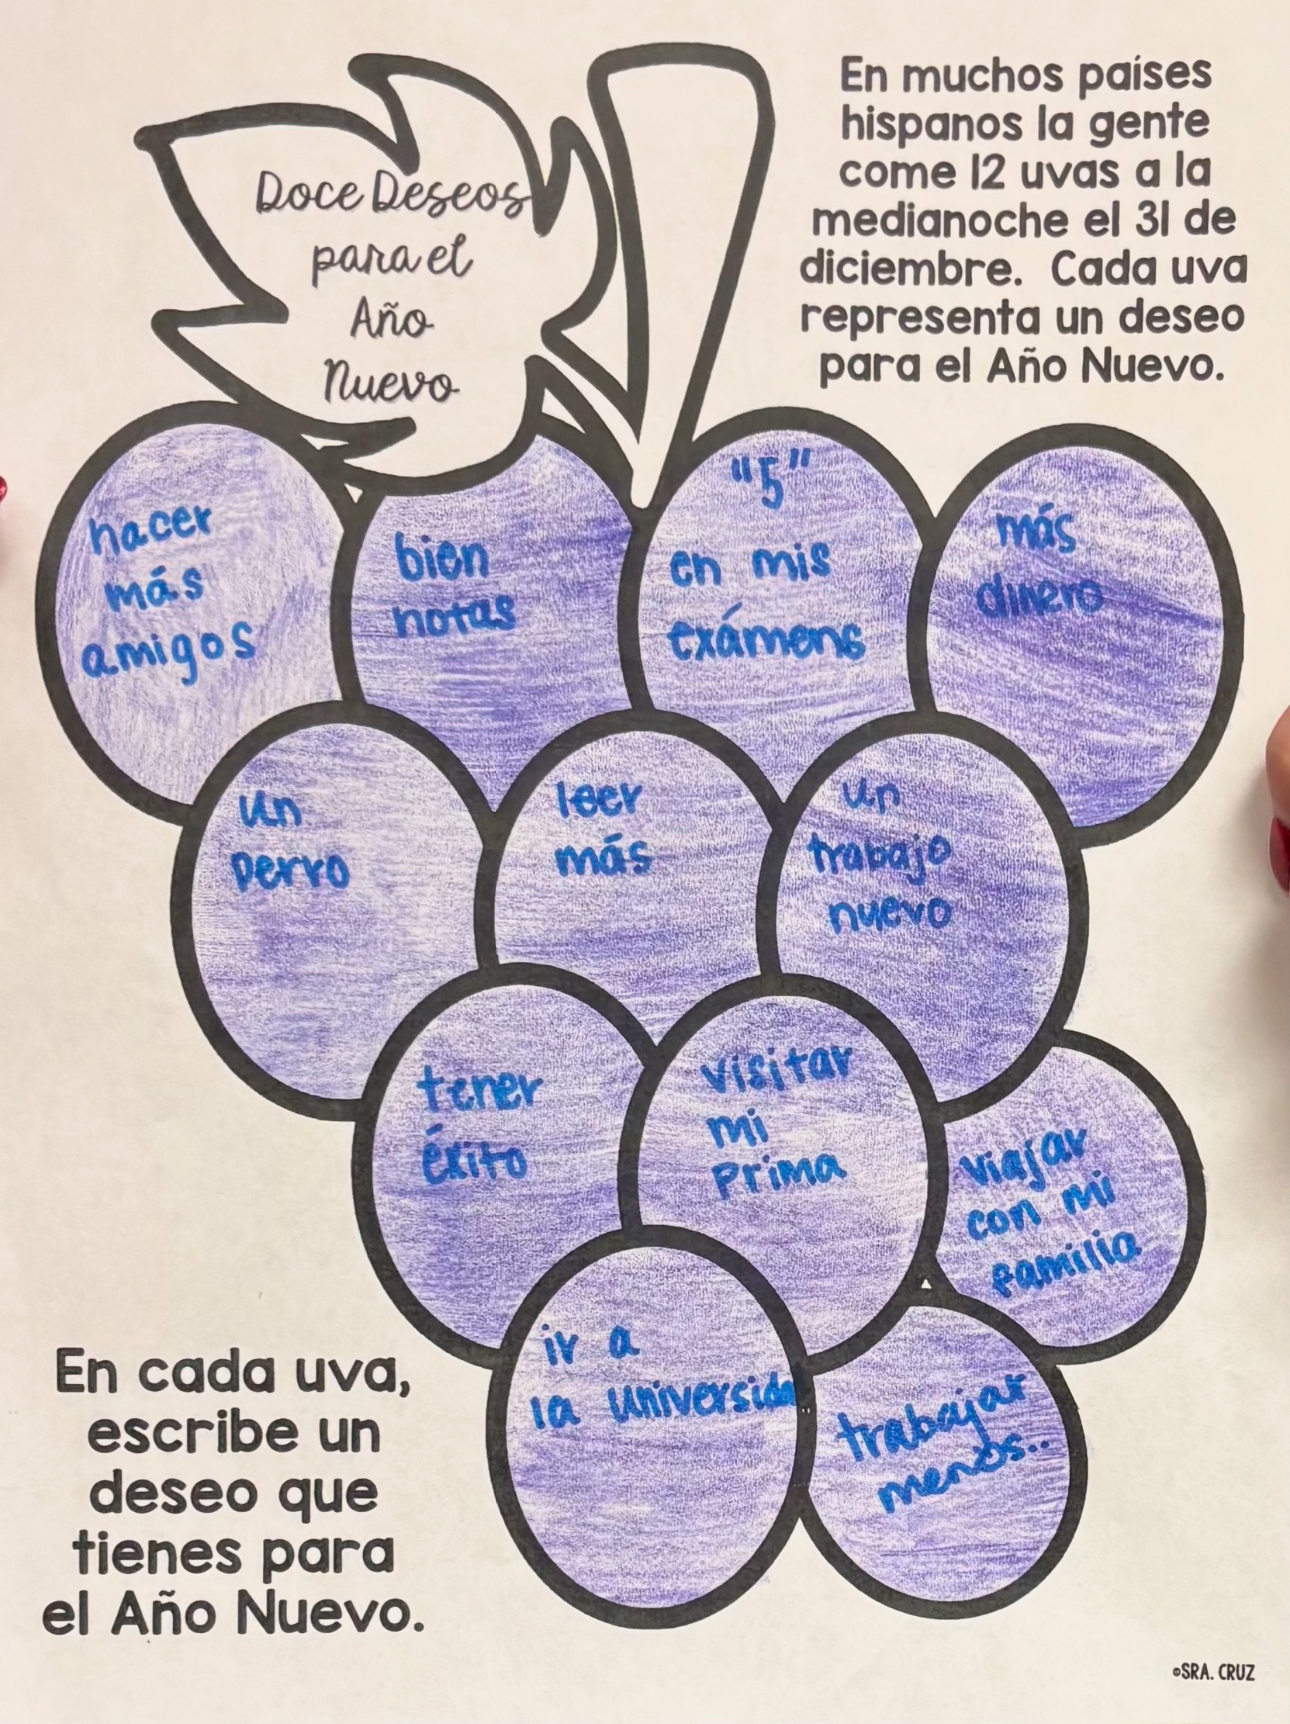 Doce Deseos
para el
Año
Nuevo
En muchos países
hispanos la gente
come 12 uvas a la
medianoche el 31 de
diciembre. Cada uva
representa un deseo
para el Año Nuevo.
hacer
más
amigos
bien
notas
"5"
en mis
exámens
más
dinero
un
perro
leer
más
un
trabajo
nuevo
tener
éxito
visitar
mi
prima
viajar
con mi
familia
ir a
la Universida
trabajar
menos..
En cada uva,
escribe un
deseo que
tienes para
el Año Nuevo.
©SRA. CRUZ